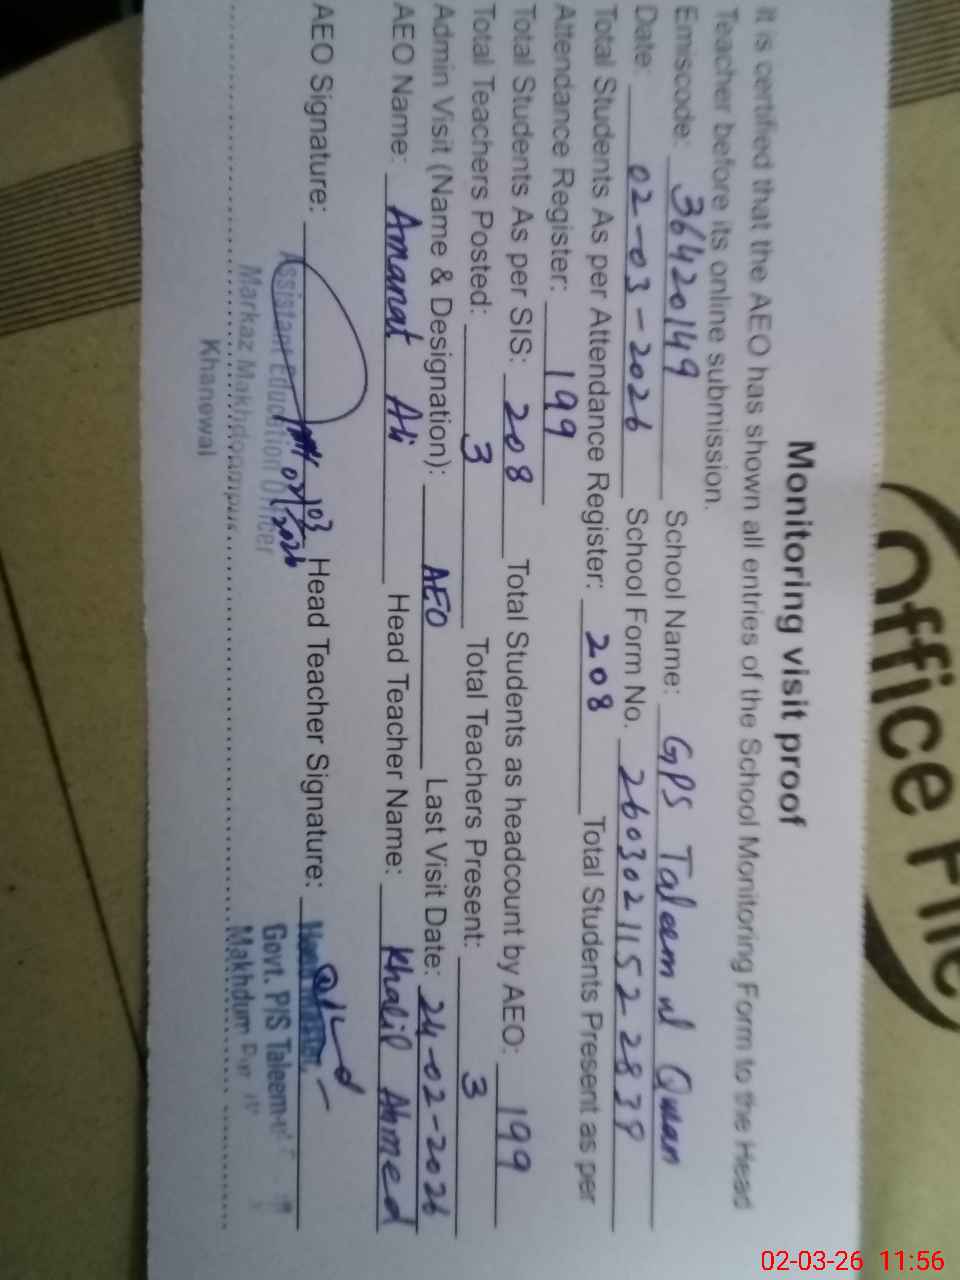 Office File
Monitoring visit proof
It is certified that the AEO has shown all entries of the School Monitoring Form to the Head
Teacher before its online submission.
Emiscode: 36420149 School Name: GPS Taleem ul Quran
Date: 02-03-2026 School Form No. 26030211522838
Total Students As per Attendance Register: 208 Total Students Present as per
Attendance Register: 199
Total Students As per SIS: 208 Total Students as headcount by AEO: 199
Total Teachers Posted: 3 Total Teachers Present: 3
Admin Visit (Name & Designation): AEO Last Visit Date: 24-02-2026
AEO Name: Amanat Ali Head Teacher Name: Khalil Ahmed
AEO Signature: 02/03/2026 Head Teacher Signature:
Assistant Education Officer
Markaz Makhdoompur
Khanewal
Head Master,
Govt. P/S Taleem-
Makhdum Pur
02-03-26 11:56